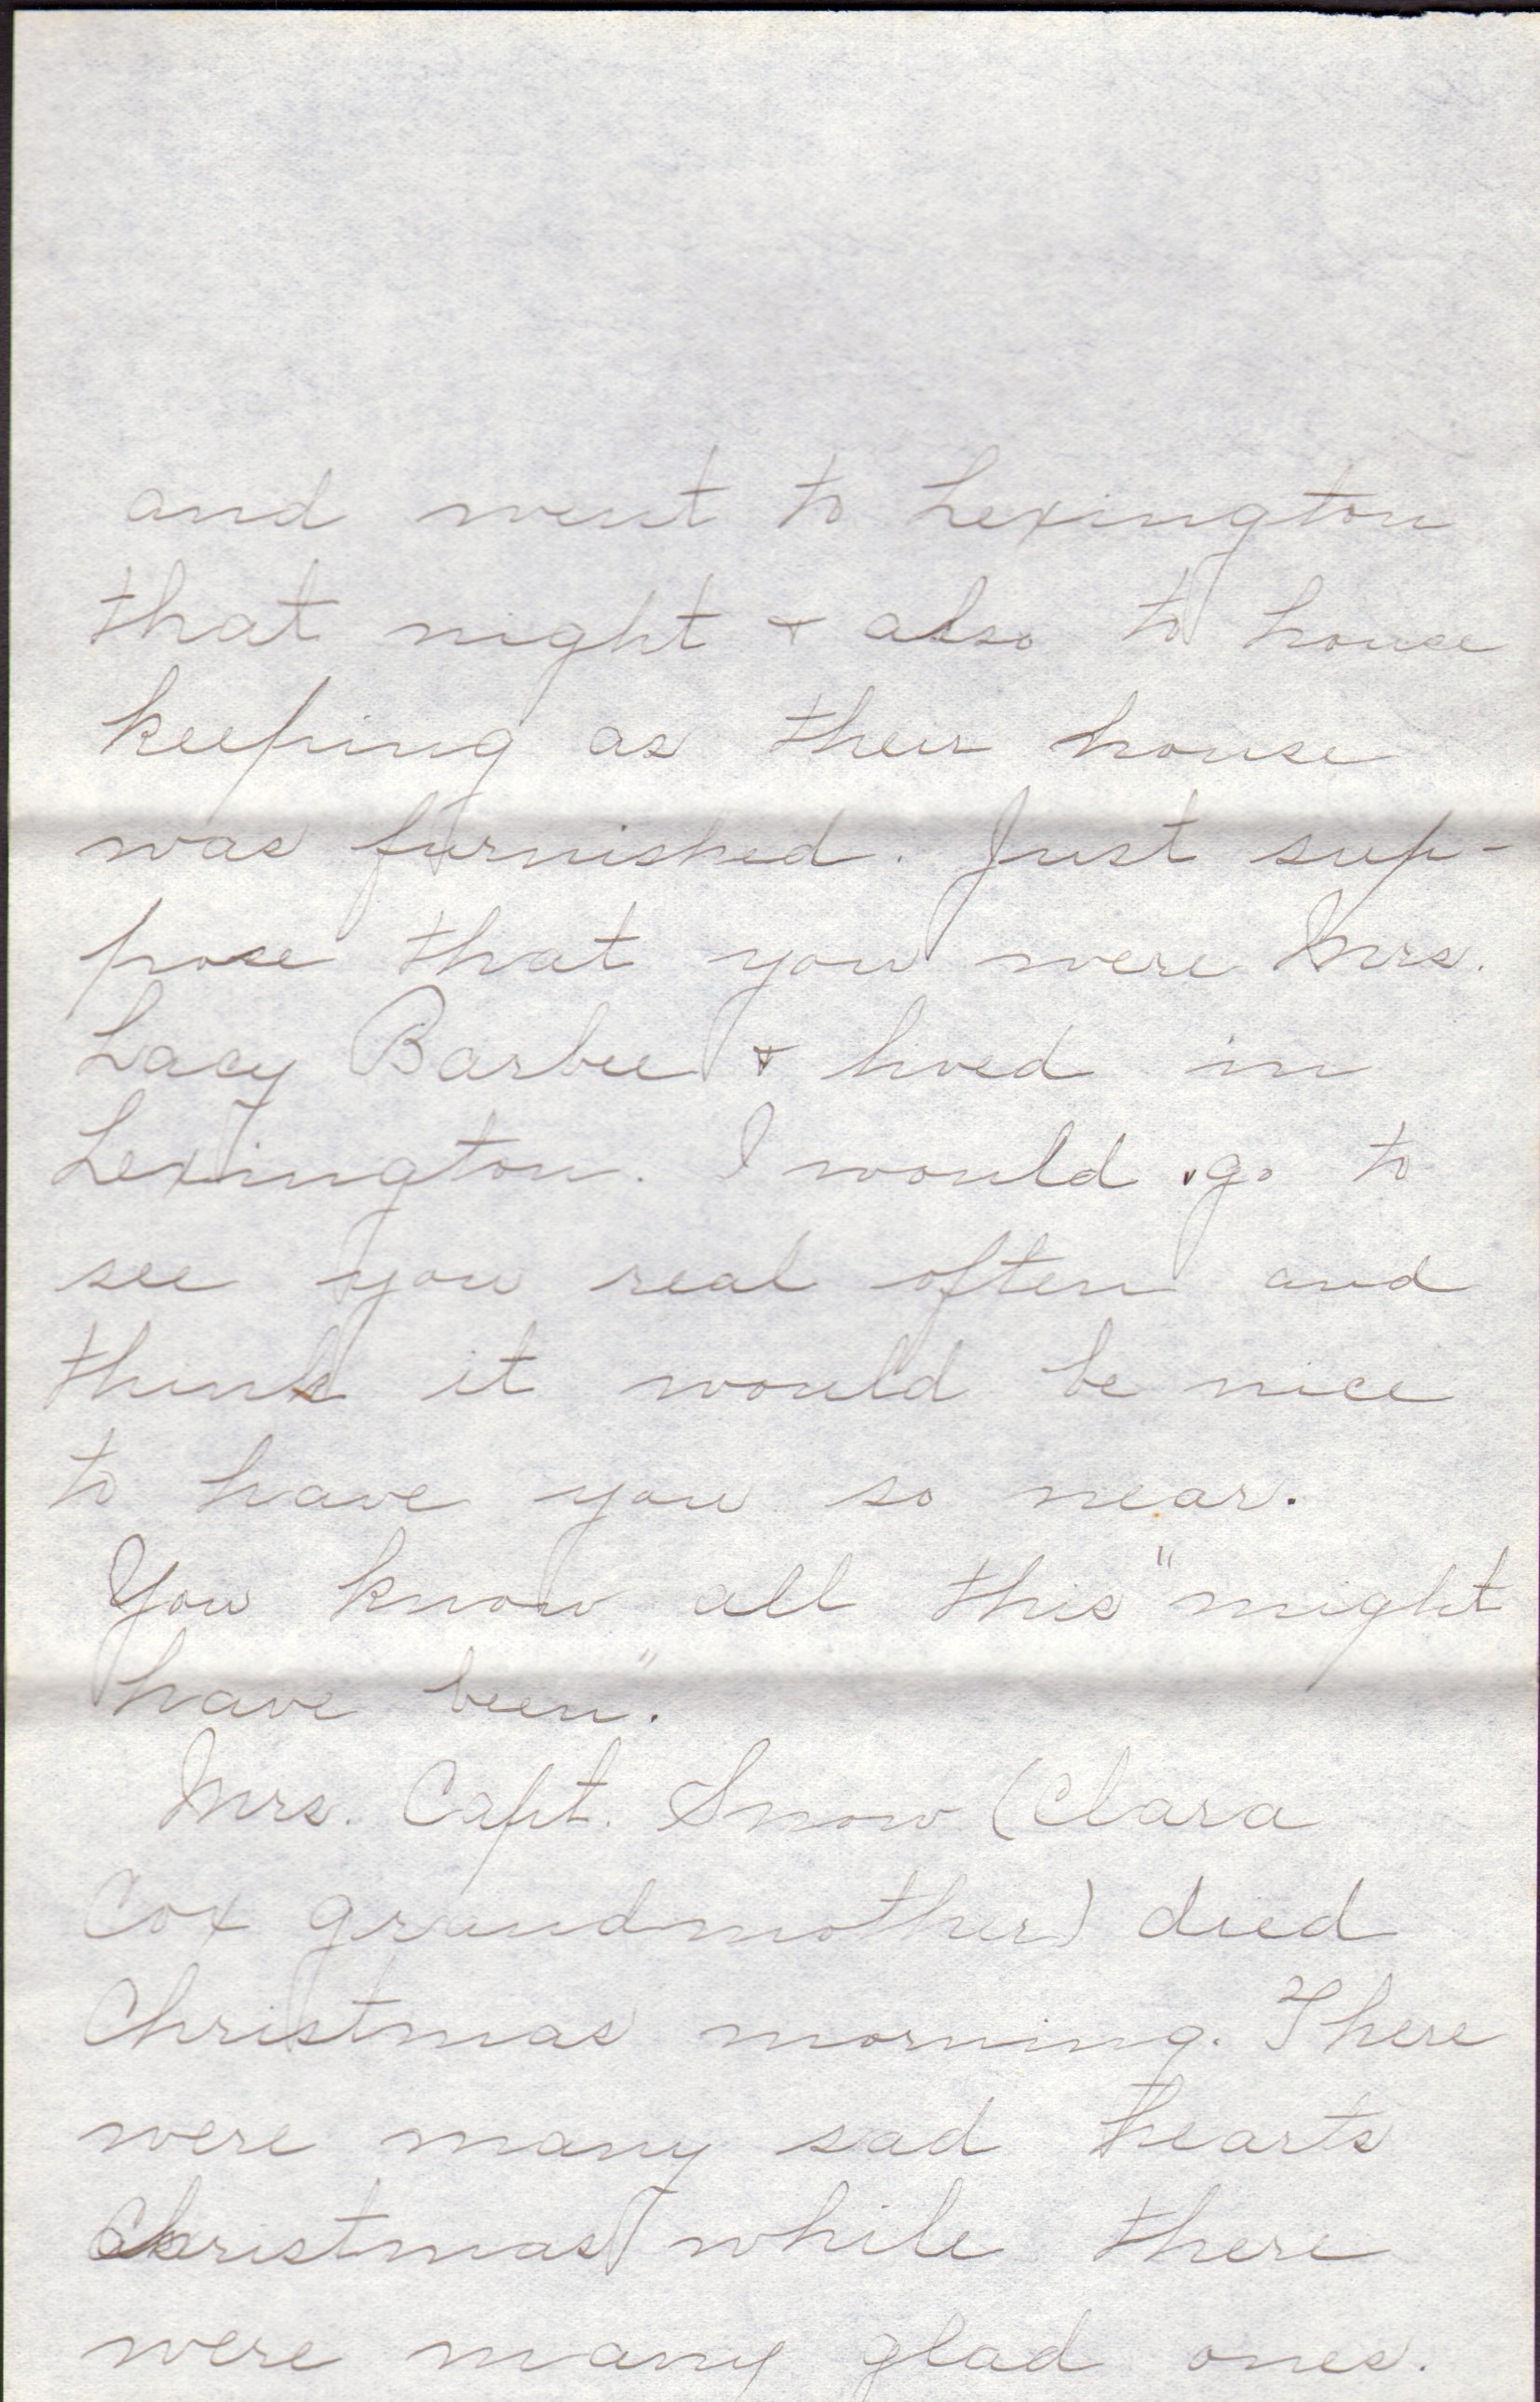 and went to Lexington
that night + also to house
keeping as their house
was furnished. Just sup-
pose that you were Mrs.
Lacy Barbee + lived in
Lexington. I would go to
see you real often and
think it would be nice
to have you so near.
You know all this "might
have been".
Mrs. Capt. Snow (Clara
Cox grandmother) died
Christmas morning. There
were many sad hearts
Christmas while there
were many glad ones.